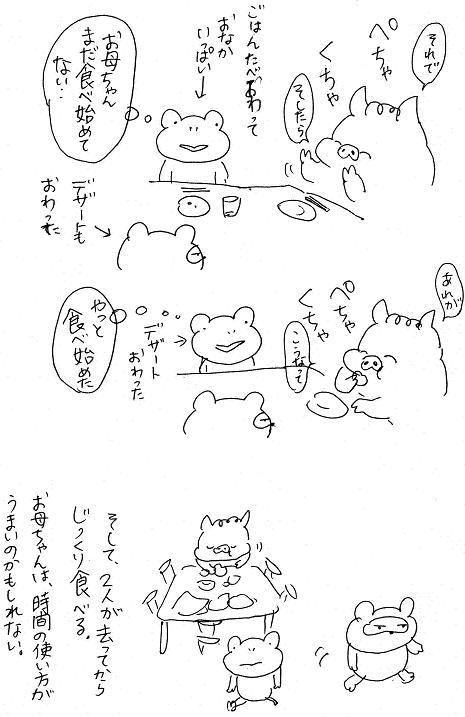 それで
ぺちゃ
くちゃ
そしたら
ごはんたべおわって
おなか
いっぱい
お母ちゃん
まだ食べ始めて
ない…
デザートも
おわった
あれが
ぺちゃ
くちゃ
こうなって
デザート
おわった
やっと
食べ始めた
そして、2人が去ってから
じっくり食べる。
お母ちゃんは、時間の使い方が
うまいのかもしれない。